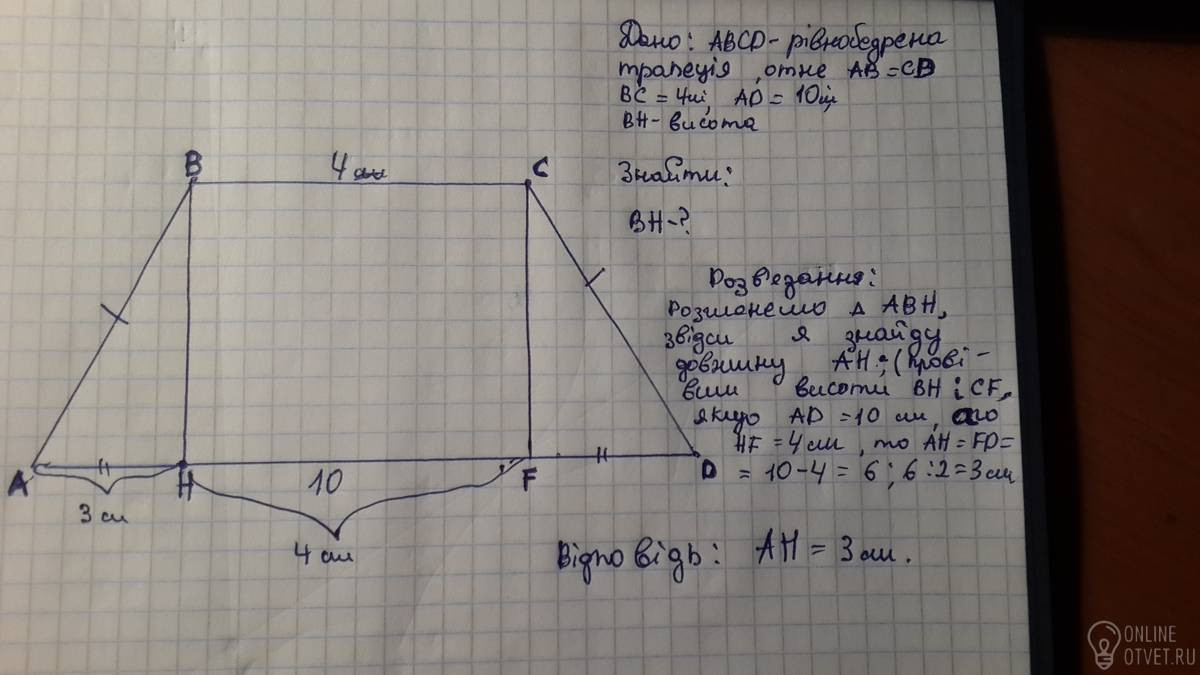 Дано: ABCD - рівнобедрена
трапеція, отже AB = CD
BC = 4см, AD = 10см,
BH - висота
Знайти:
BH - ?
B
4 см
C
Розв'язання:
Розглянемо Δ ABH,
звідси я знайду
довжину AH; (прові-
вши висоти BH і CF,
якщо AD = 10 см, а
HF = 4 см, то AH = FD =
= 10 - 4 = 6; 6 : 2 = 3 см
A
H
10
F
D
3 см
4 см
Відповідь: AH = 3 см.
ONLINE
OTVET.RU